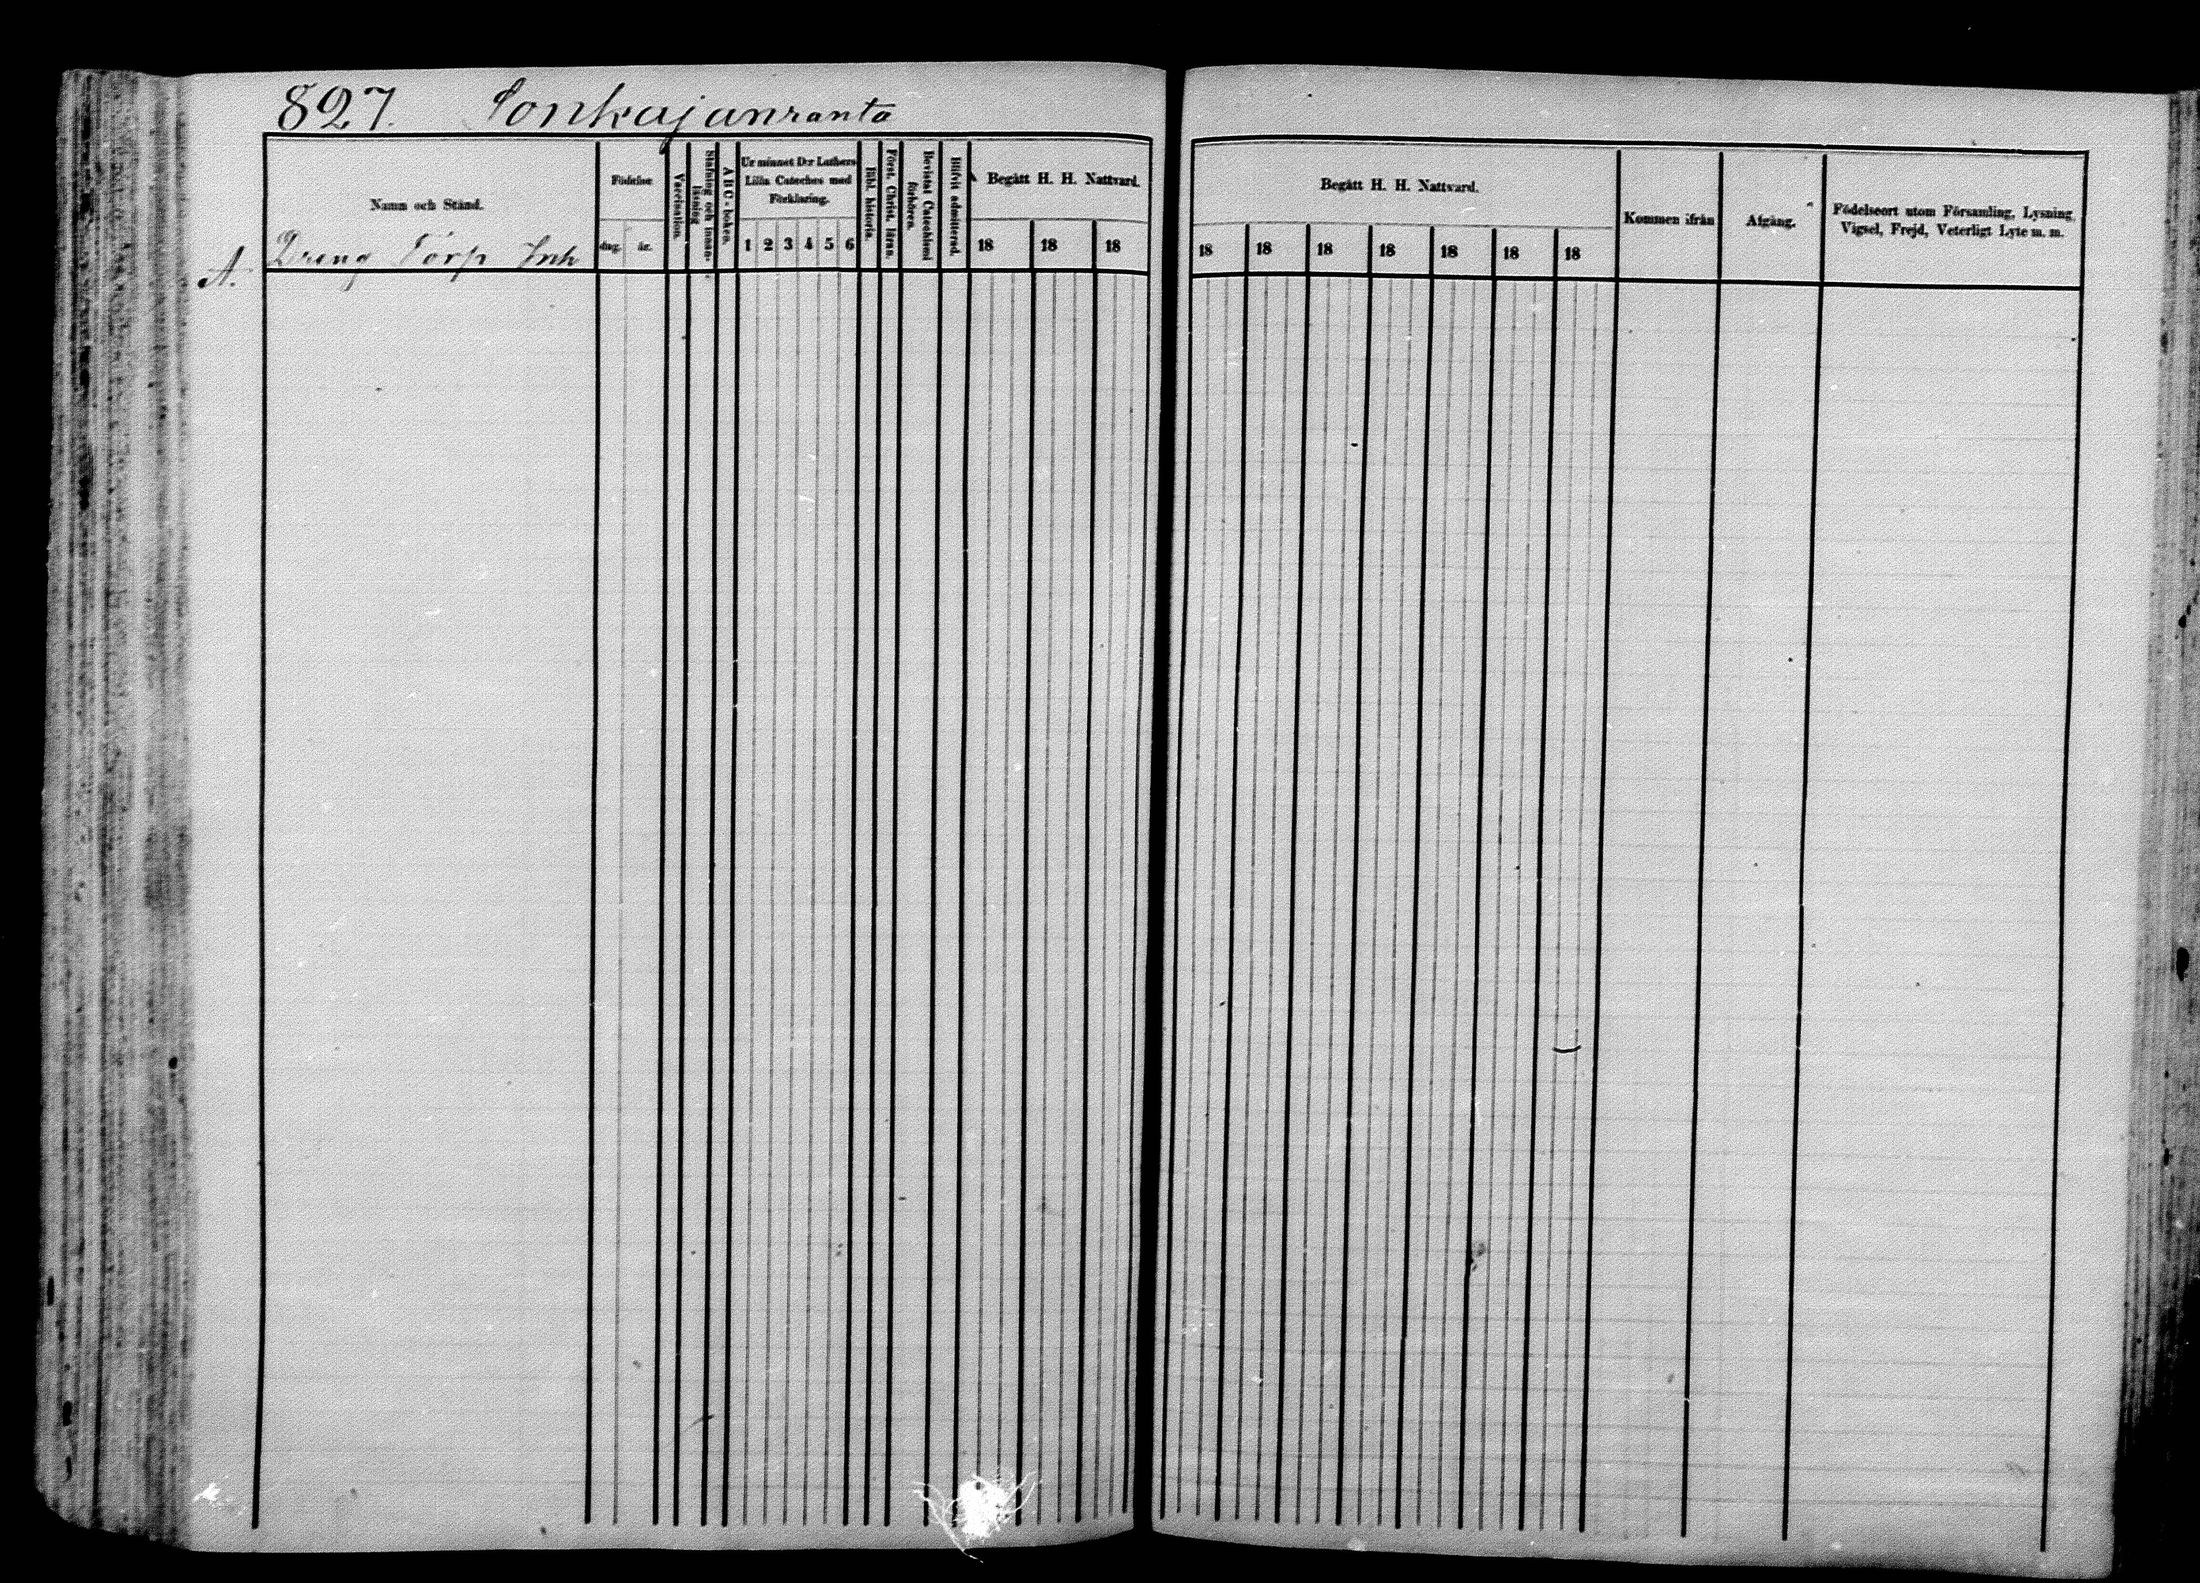 827. Sonkajanranta
Namn och Stånd.
Dreng Torp Inh
A.
Födelse
dag. år.
Vaccination.
Stafning och innan-
läsning
ABC-boken.
Ur minnet D:r Luthers
Lilla Cateches med
Förklaring.
1 2 3 4 5 6
Bibl. historia.
Först. Christ. läran.
Bevistat Catechismi
förhören.
Blifvit admitterad.
Begått H. H. Nattvard.
18 18 18
Begått H. H. Nattvard.
18 18 18 18 18 18 18
Kommen ifrån
Afgång.
Födelseort utom Församling, Lysning,
Vigsel, Frejd, Veterligt Lyte m. m.